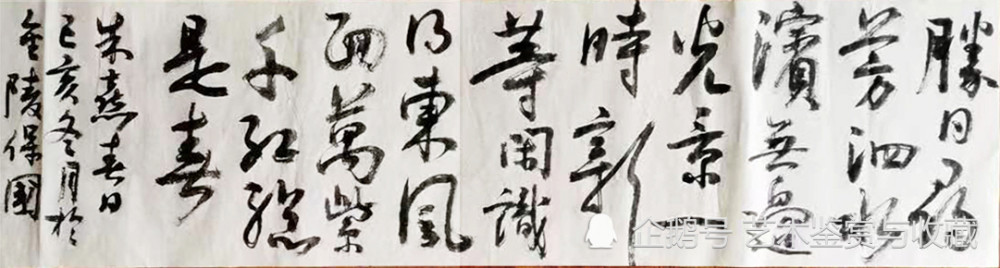 勝日尋
芳泗水
濱無邊
光景
時新
等閑識
得東風
面萬紫
千紅總
是春
朱熹春日
己亥冬月於
金陵保國
企鹅号 艺术鉴赏与收藏